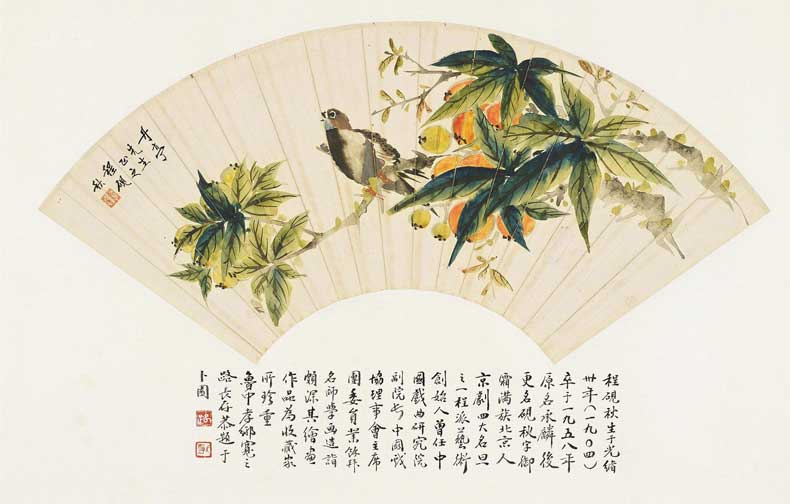 亭
先生
正之
程硯
秋
程硯秋生于光緒
卅年(一九〇四)
卒于一九五八年
原名承麟後
更名硯秋字御
霜滿族北京人
京劇四大名旦
之一程派藝術
創始人曾任中
國戲曲研究院
副院长中國戲
協理事會主席
團委員業餘拜
名師學画造詣
頗深其繪畫
作品為收藏家
所珍重
魯中孝鄉寒之
路長存恭題于
卜園